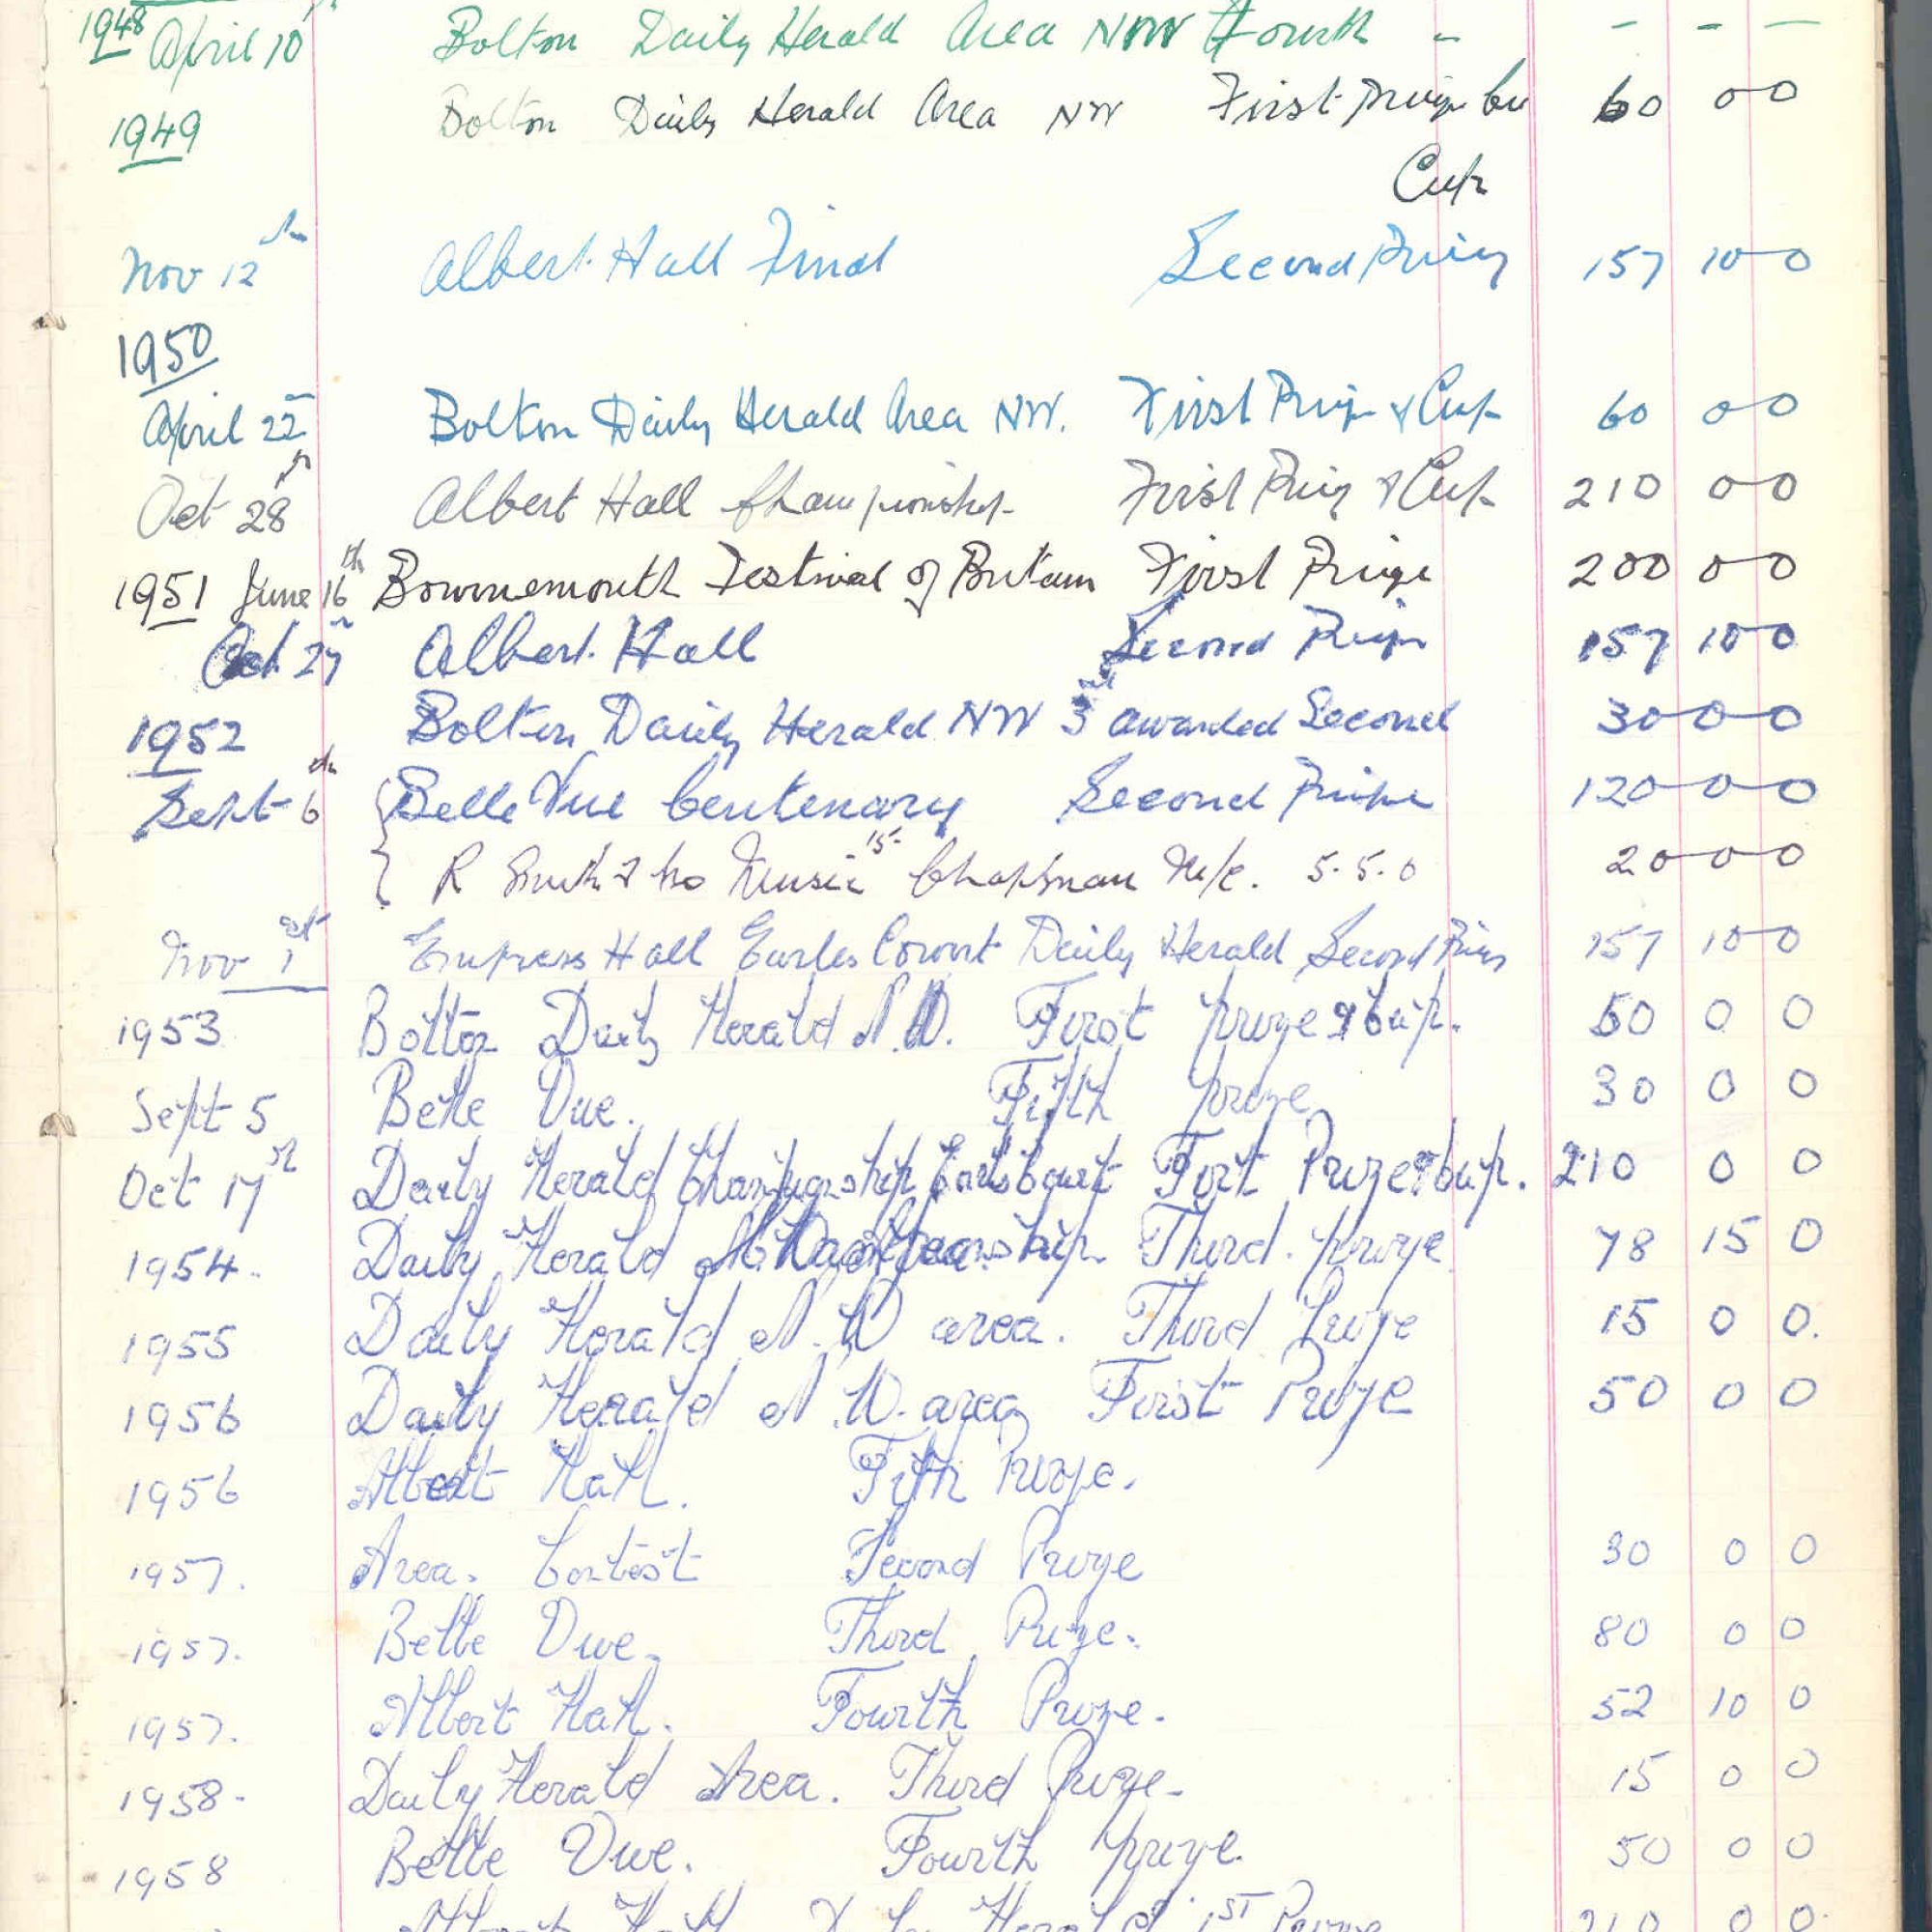 1948 April 10th Bolton Daily Herald Area NW Fourth - - - -
1949 Bolton Daily Herald Area NW First Prize 60 0 0
Cup
Nov 12th Albert Hall Final Second Prize 157 10 0
1950
April 22 Bolton Daily Herald Area NW. First Prize & Cup 60 0 0
Oct 28th Albert Hall Championship First Prize & Cup 210 0 0
1951 June 16th Bournemouth Festival of Britain First Prize 200 0 0
Oct 27 Albert Hall Second Prize 157 10 0
1952 Bolton Daily Herald NW 3rd awarded Second 30 0 0
Sept 6th Belle Vue Centenary Second Prize 120 0 0
R Smith & Co Music 15- Chapman M/c. 5.5.0 20 0 0
Nov 1st Empress Hall Earles Court Daily Herald Second Prize 157 10 0
1953 Bolton Daily Herald N.W. First prize & Cup. 50 0 0
Sept 5 Belle Vue. Fifth prize 30 0 0
Oct 17th Daily Herald Championship Earls Court First Prize & Cup. 210 0 0
1954. Daily Herald Third. prize 78 15 0
1955 Daily Herald N.W area. Third Prize 15 0 0.
1956 Daily Herald N.W. area First Prize 50 0 0
1956 Albert Hall. Fifth Prize.
1957. Area. Contest Second Prize 30 0 0
1957. Belle Vue. Third Prize. 80 0 0
1957. Albert Hall. Fourth Prize. 52 10 0
1958. Daily Herald Area. Third Prize. 15 0 0
1958 Belle Vue. Fourth prize. 50 0 0
Albert Hall Herald 1ST Prize 210 0 0.